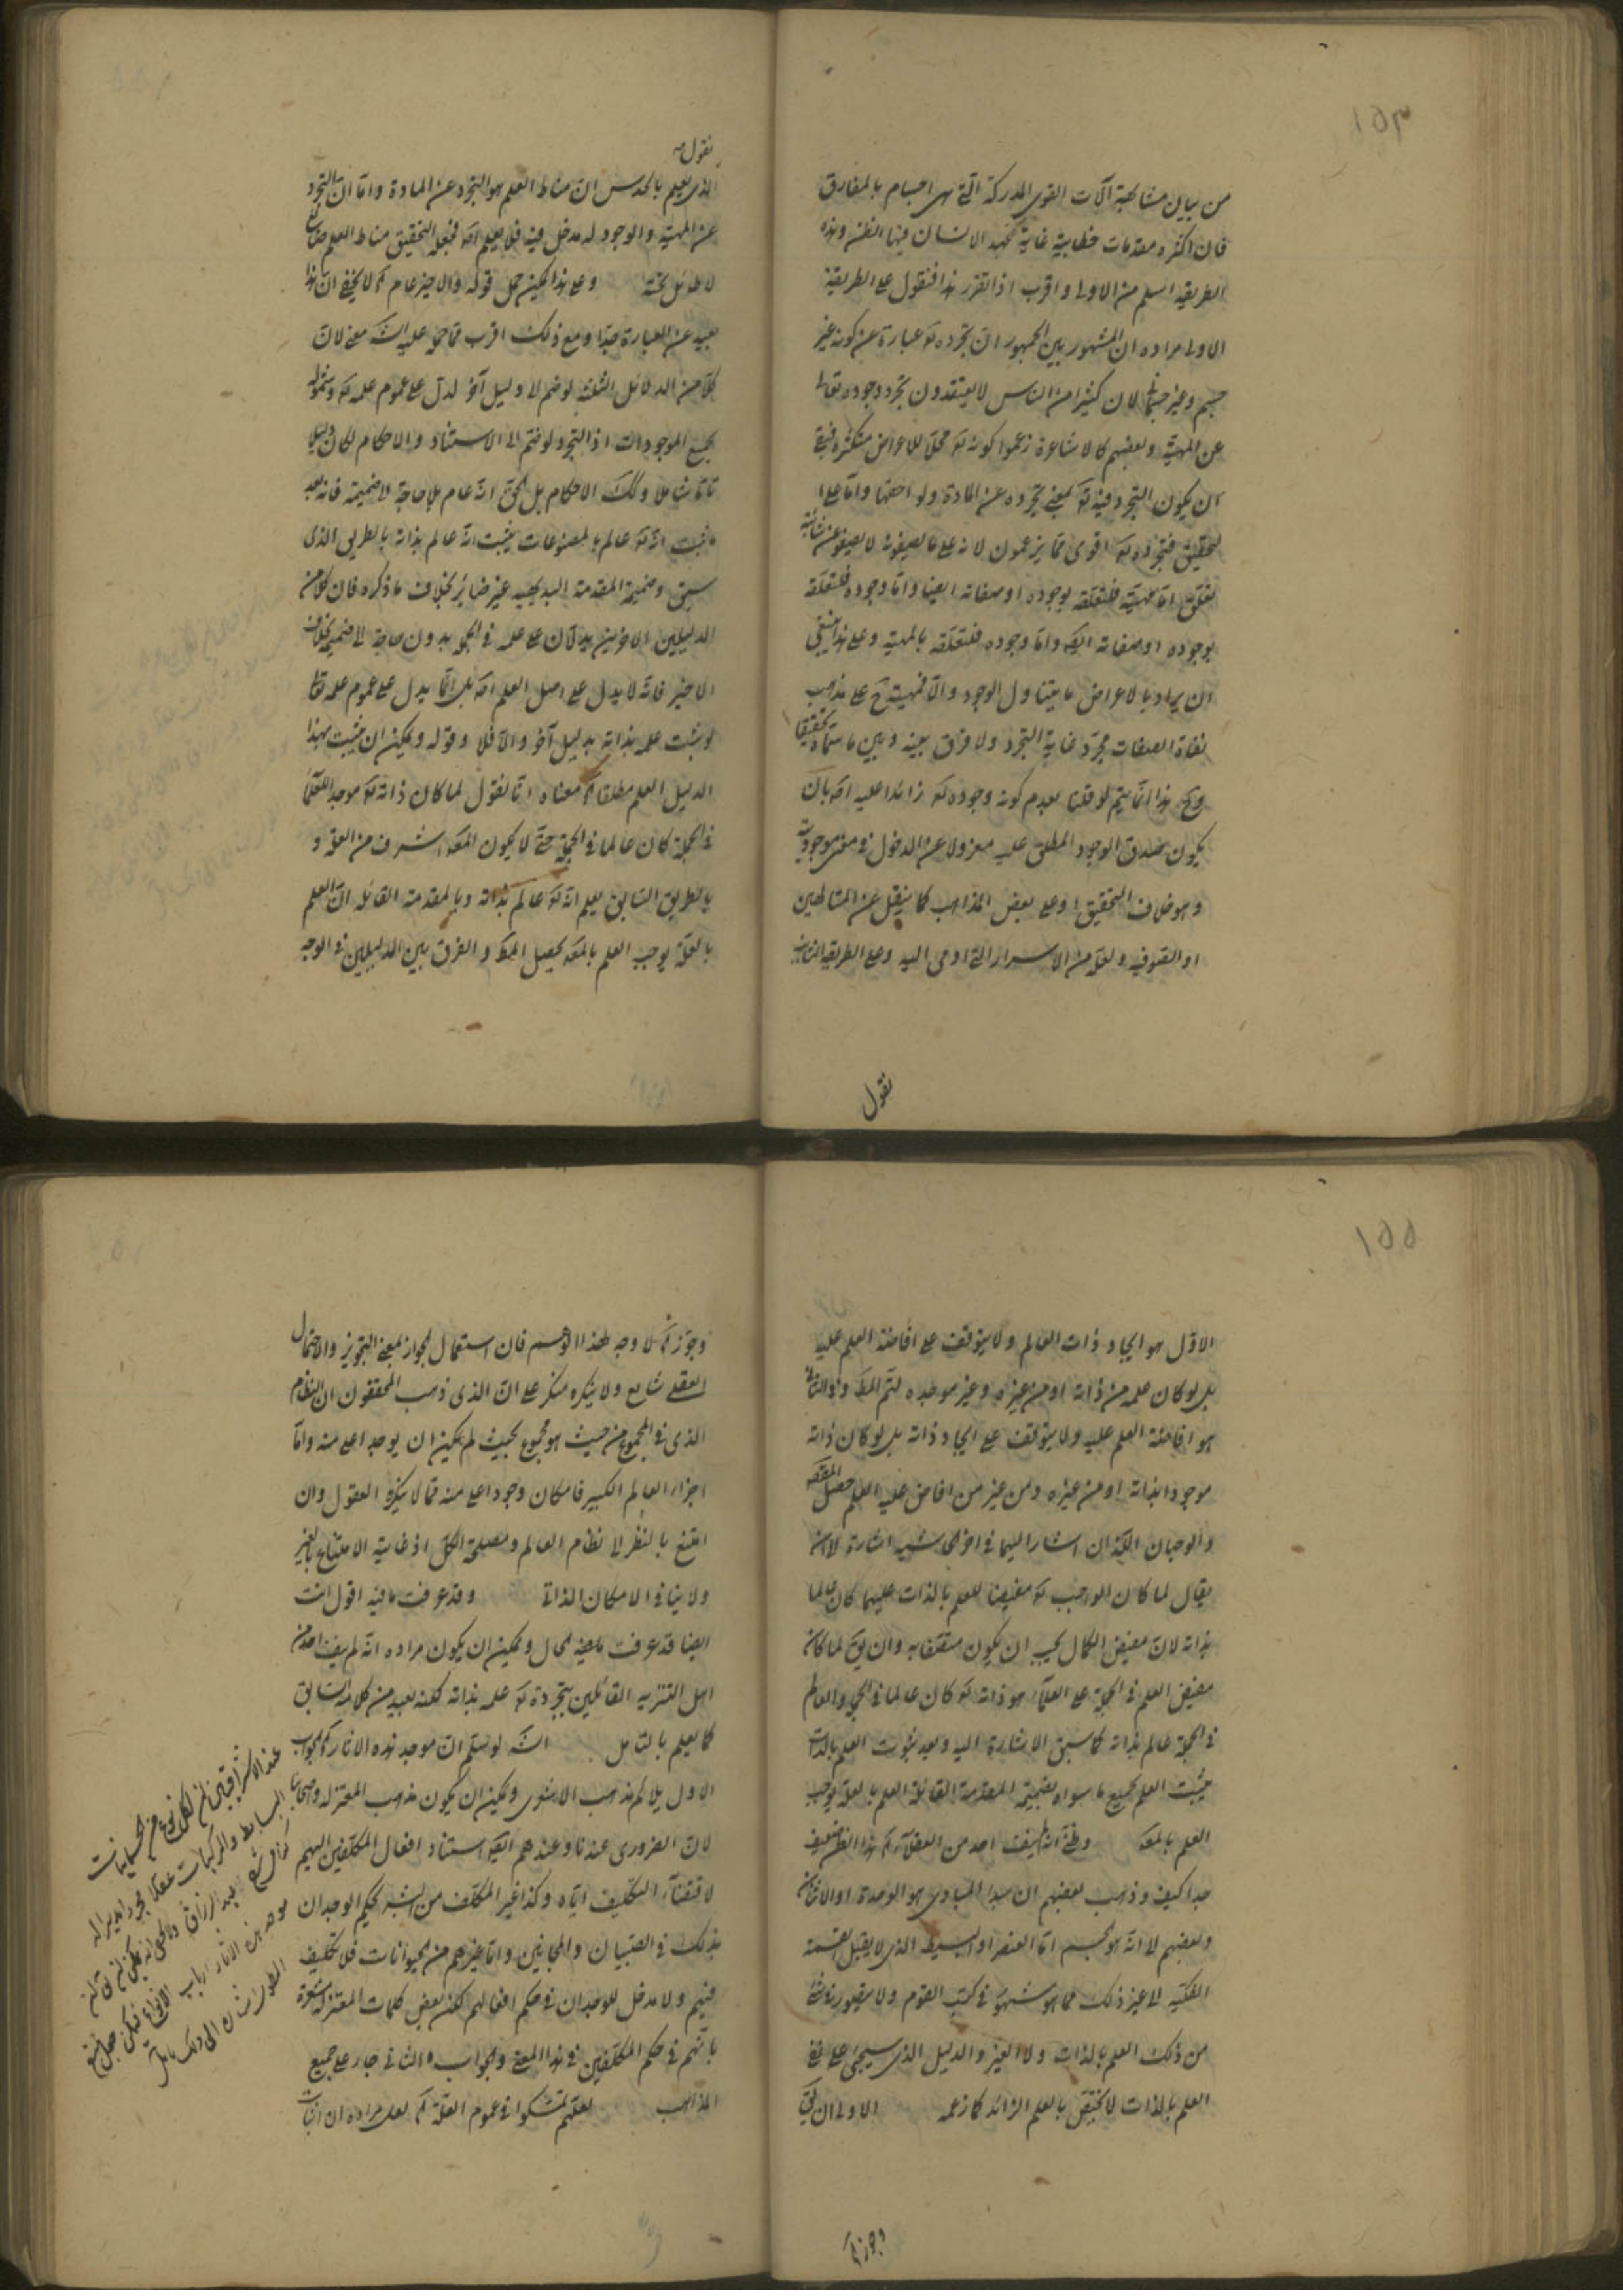 ١٥٣
من بيان مشابهة آلات القوى المدركة التى هى اجسام بالمفارق
فان اكثره مقدمات خطابية غاية الانسان فيها الظن وهذه
الطريقة اسلم من الاولى واقرب اذا تقرر هذا فنقول على الطريقة
الاولى مراده ان المشهور بين الجمهور ان تجرده تعـ عبارة عن كونه غير
جسم وغير جسمانى لان كثيرا من الناس لا يعتقدون تجرد وجوده تعالى
عن المهية وبعضهم كالاشاعرة زعموا كونه تعـ محلا للاعراض متكثرة
ان يكون التجرد فيه تعـ بمعنى تجرده عن المادة ولواحقها واما على
التحقيق فتجرده تعـ اقوى مما يزعمون لانه على ما يصفونه لا يصفو عن شائبة
تعلق اما مهيته فلتعلقه بوجوده او صفاته ايضا واما وجوده فلتعلقه
بوجوده او صفاته ايضـ واما وجوده فلتعلقه بالمهية وعلى هذا ينبغى
ان يراد بالاعراض ما يتناول الوجود والا فمهيته ح على مذهب
نفاة الصفات مجرد غاية التجرد ولا فرق بينه وبين ما سماه تحقيقا
وح هذا انما يتم لو قلنا بعدم كونه وجوده تعـ زائدا عليه اصـ بان
يكون صدق الوجود المطلق عليه معزولا عن الدخول فى معنى موجوديته
وهو خلاف التحقيق وعلى بعض المذاهب كما ينقل عن المتألهين
او الصوفيه ولعله من الاسرار التى اومى اليه وعلى الطريقة الثانية
نقول
نقول
الذى يعلم بالحدس ان مناط العلم هو التجرد عن المادة واما ان التجرد
عن المهية والوجود له مدخل فيه فلا يعلم اصـ فجعل التحقيق مناط العلم ضائع
لا طائل تحته وعلى هذا يمكن حمل قوله والاخير عام اه لا يخفى ان هذا
بعيد عن العبارة جدا ومع ذلك اقرب مما حمل عليه الشـ معنى لان
كلا من الدلائل الثلثة لو ضم الى دليل آخر لدل على عموم علمه تعـ وشموله
بجميع الموجودات اذ التجرد لو ضم الى الاستناد والاحكام لكان دليلا
تاما شاملا وكك الاحكام بل الحق انه عام بلا حاجة لا ضميمة فانه بعد
ما ثبت انه تعـ عالم بالمصنوعات يثبت انه عالم بذاته بالطريق الذى
سبق وضميمة المقدمة البديهية غير ضائر بخلاف ما ذكره فان كلا من
الدليلين الاخرين يدلان على علمه فى الجملة بدون حاجة الى ضميمة بخلاف
الاخير فانه لا يدل على اصل العلم اصـ بل انما يدل على عموم علمه تعالى
لو ثبت علمه بذاته بدليل آخر والا فلا وقوله ويمكن ان يثبت بهذا
الدليل العلم مطلقا اه معناه انا نقول لما كان ذاته تعـ موجد العقلاء
فى الجملة كان عالما فى الجملة حتى لا يكون المعـ اشرف من العلة و
بالطريق السابق يعلم انه تعـ عالم بذاته وبالمقدمة القائلة ان العلم
بالعلة يوجب العلم بالمعـ يحصل المط والفرق بين الدليلين فى الوجه
١٥٥
الاول هو ايجاد ذات العالم ولا يتوقف على افاضة العلم عليه
بل لو كان علمه من ذاته او من غيره وغير موجده لتم المط وفى الثانى
هو افاضة العلم عليه ولا يتوقف على ايجاد ذاته بل لو كان ذاته
موجودا بذاته او من غيره ومن غير من افاض عليه العلم حصل المقصـ
والوجهان اللذان اشار اليهما فى الحواشى اشارة لان
يقال لما كان الواجب تعـ مفيضا للعلم بالذات عليهما كان عالما
بذاته لان مفيض الكمال يجب ان يكون متصفا به وان يق لما كان
مفيض العلم فى الجملة على العقلاء هو ذاته تعـ كان عالما فى الجملة والعالم
فى الجملة عالم بذاته كما سبق الاشارة اليه وبعد ثبوت العلم بالذات
يثبت العلم بجميع ما سواه بضميمة المقدمة القائلة العلم بالعلة يوجب
العلم بالمعـ وظنى انه لم يقف احد من العقلاء اه هذا الظن ضعيف
جدا كيف وذهب بعضهم ان مبدا المبادى هو الوحدة او الاثنان
وبعضهم لا انه هو الجسم اما العنصر او البسيط الذى لا يقبل القسمة
الفكية الى غير ذلك مما هو مشهور فى كتب القوم ولا يتصور فى شئ
من ذلك العلم بالذات ولا الغير والدليل الذى سيجئ على نفى
العلم بالذات لا يختص بالعلم الزائد كما زعمه الاولى ان يق
وجوز اه
وجوز اه لا وجه لهذا الوهم فان استعمال الجواز بمعنى التجويز والاحتمال
العقلى شايع ولا ينكره منكر على ان الذى ذهب المحققون ان النظام
الذى فى المجموع من حيث هو مجموع بحيث لم يمكن ان يوجد اعلى منه واما
اجزاء العالم الكبير فامكان وجود اعلى منه مما لا ينكره العقول وان
امتنع بالنظر الى نظام العالم ومصلحة الكل اذ غايته الامتناع بالغير
ولا ينافى الامكان الذاتى وقد عرفت ما فيه اقول انت
ايضا قد عرفت ما فيه الحال ويمكن ان يكون مراده انه لم ينف احد من
اهل التنزيه القائلين بتجرده تعـ علمه بذاته لكنه بعيد من كلامه السابق
كما يعلم بالتامل الشـ لو سلم ان موجد هذه الاثار اه الجواب
الاول يلائم مذهب الاشعرى ويمكن ان يكون مذهب المعتزلة
لان الضرورى عندنا وعندهم ايضـ استناد افعال المكلفين اليهم
لاقتضاء التكليف اياه وكذا غير المكلف من البشر بحكم الوجدان
بذلك فى الصبيان والمجانين واما غيرهم من الحيوانات فلا تكليف
فيهم ولا مدخل للوجدان فى حكم افعالهم لكن بعض كلمات المعتزلة مشعرة
بانهم فى حكم المكلفين فى هذا المعنى والجواب الثانى جار على جميع
المذاهب لعلهم تمسكوا فى عموم العلة اه لعل مراده ان اثبات
عند الاشراقيين ان لكل نوع من الجسمانيات
البسايط والمركبات عقلا مجردا يدبر له
عبد الرزاق
موجد هذه الاثار ارباب الانواع